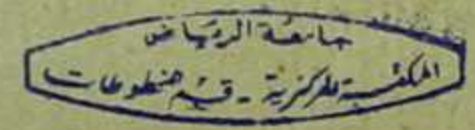 جامعة الرياض
المكتبة المركزية - قسم مخطوطات